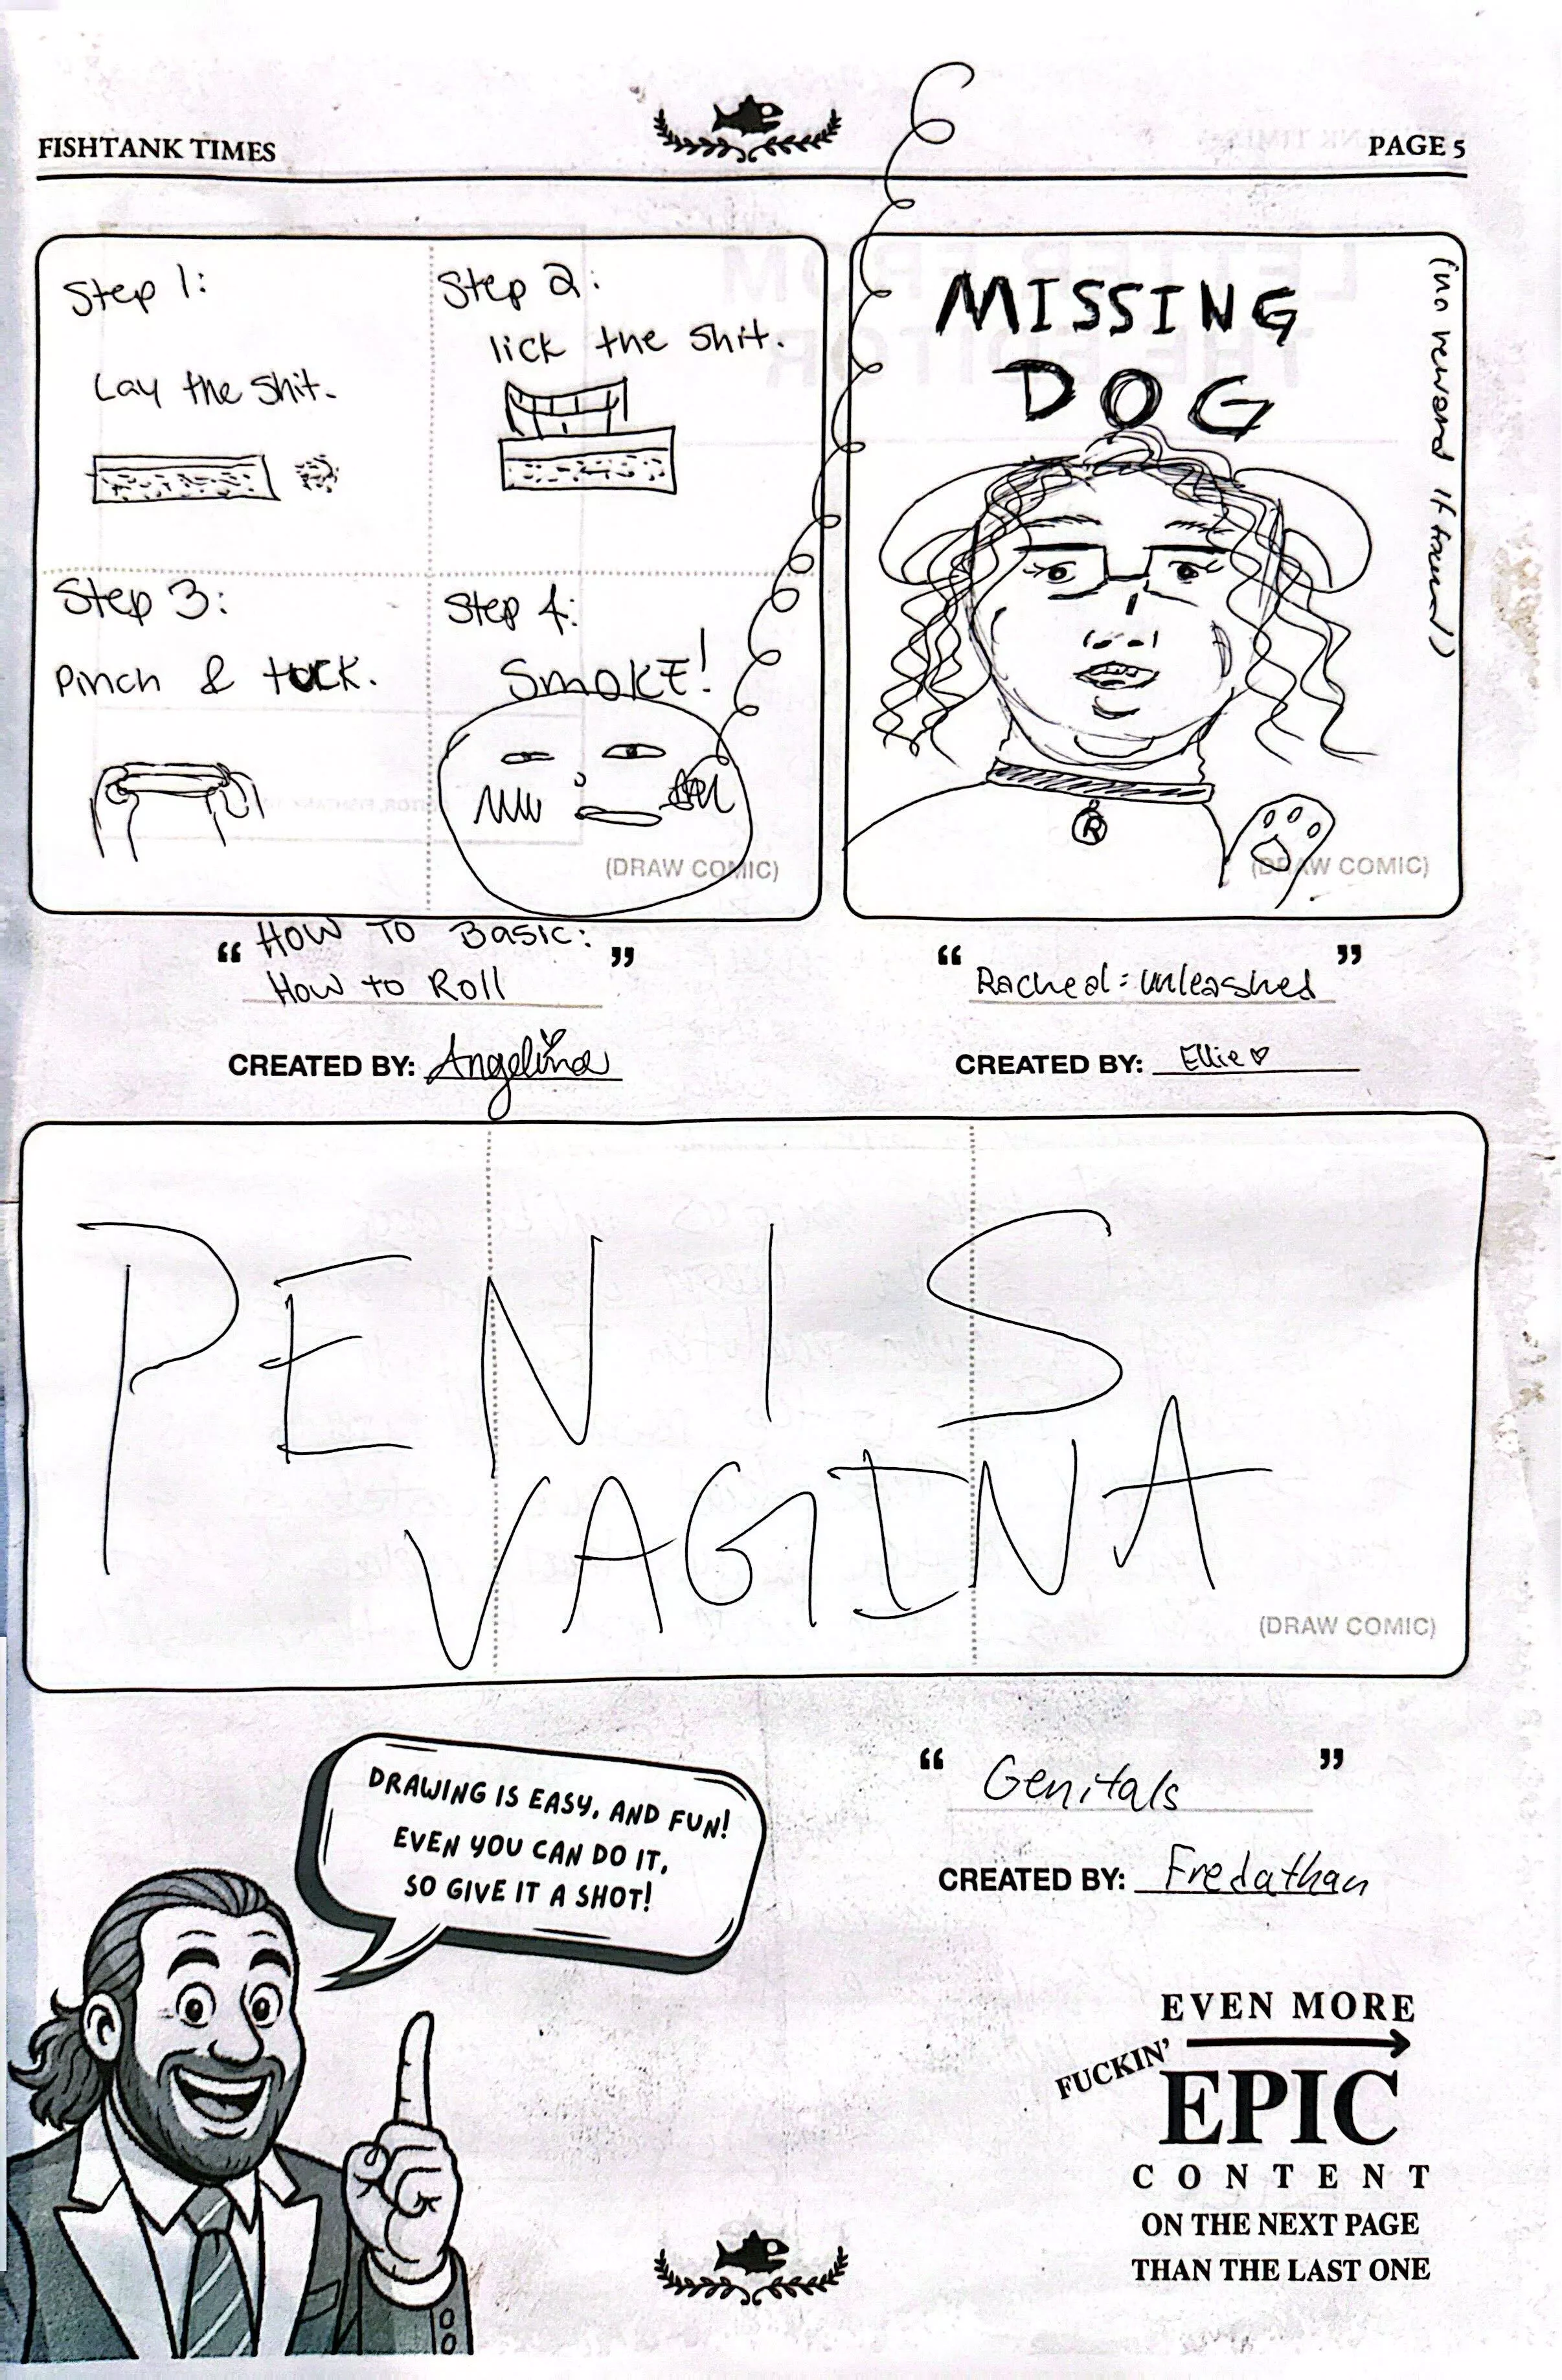 FISHTANK TIMES
PAGE 5
Step 1:
Lay the Shit.
Step 2:
lick the shit.
Step 3:
Pinch & tuck.
Step 4:
SmoKE!
(DRAW COMIC)
“ HOW TO BasIC: ”
How to Roll
CREATED BY: Angelina
MISSING
DOG
(no reward if found)
R
(DRAW COMIC)
“ Racheal: unleashed ”
CREATED BY: Ellie♡
PENIS
VAGINA
(DRAW COMIC)
“ Genitals ”
CREATED BY: Fredathan
DRAWING IS EASY, AND FUN!
EVEN YOU CAN DO IT,
SO GIVE IT A SHOT!
EVEN MORE
FUCKIN'
EPIC
CONTENT
ON THE NEXT PAGE
THAN THE LAST ONE